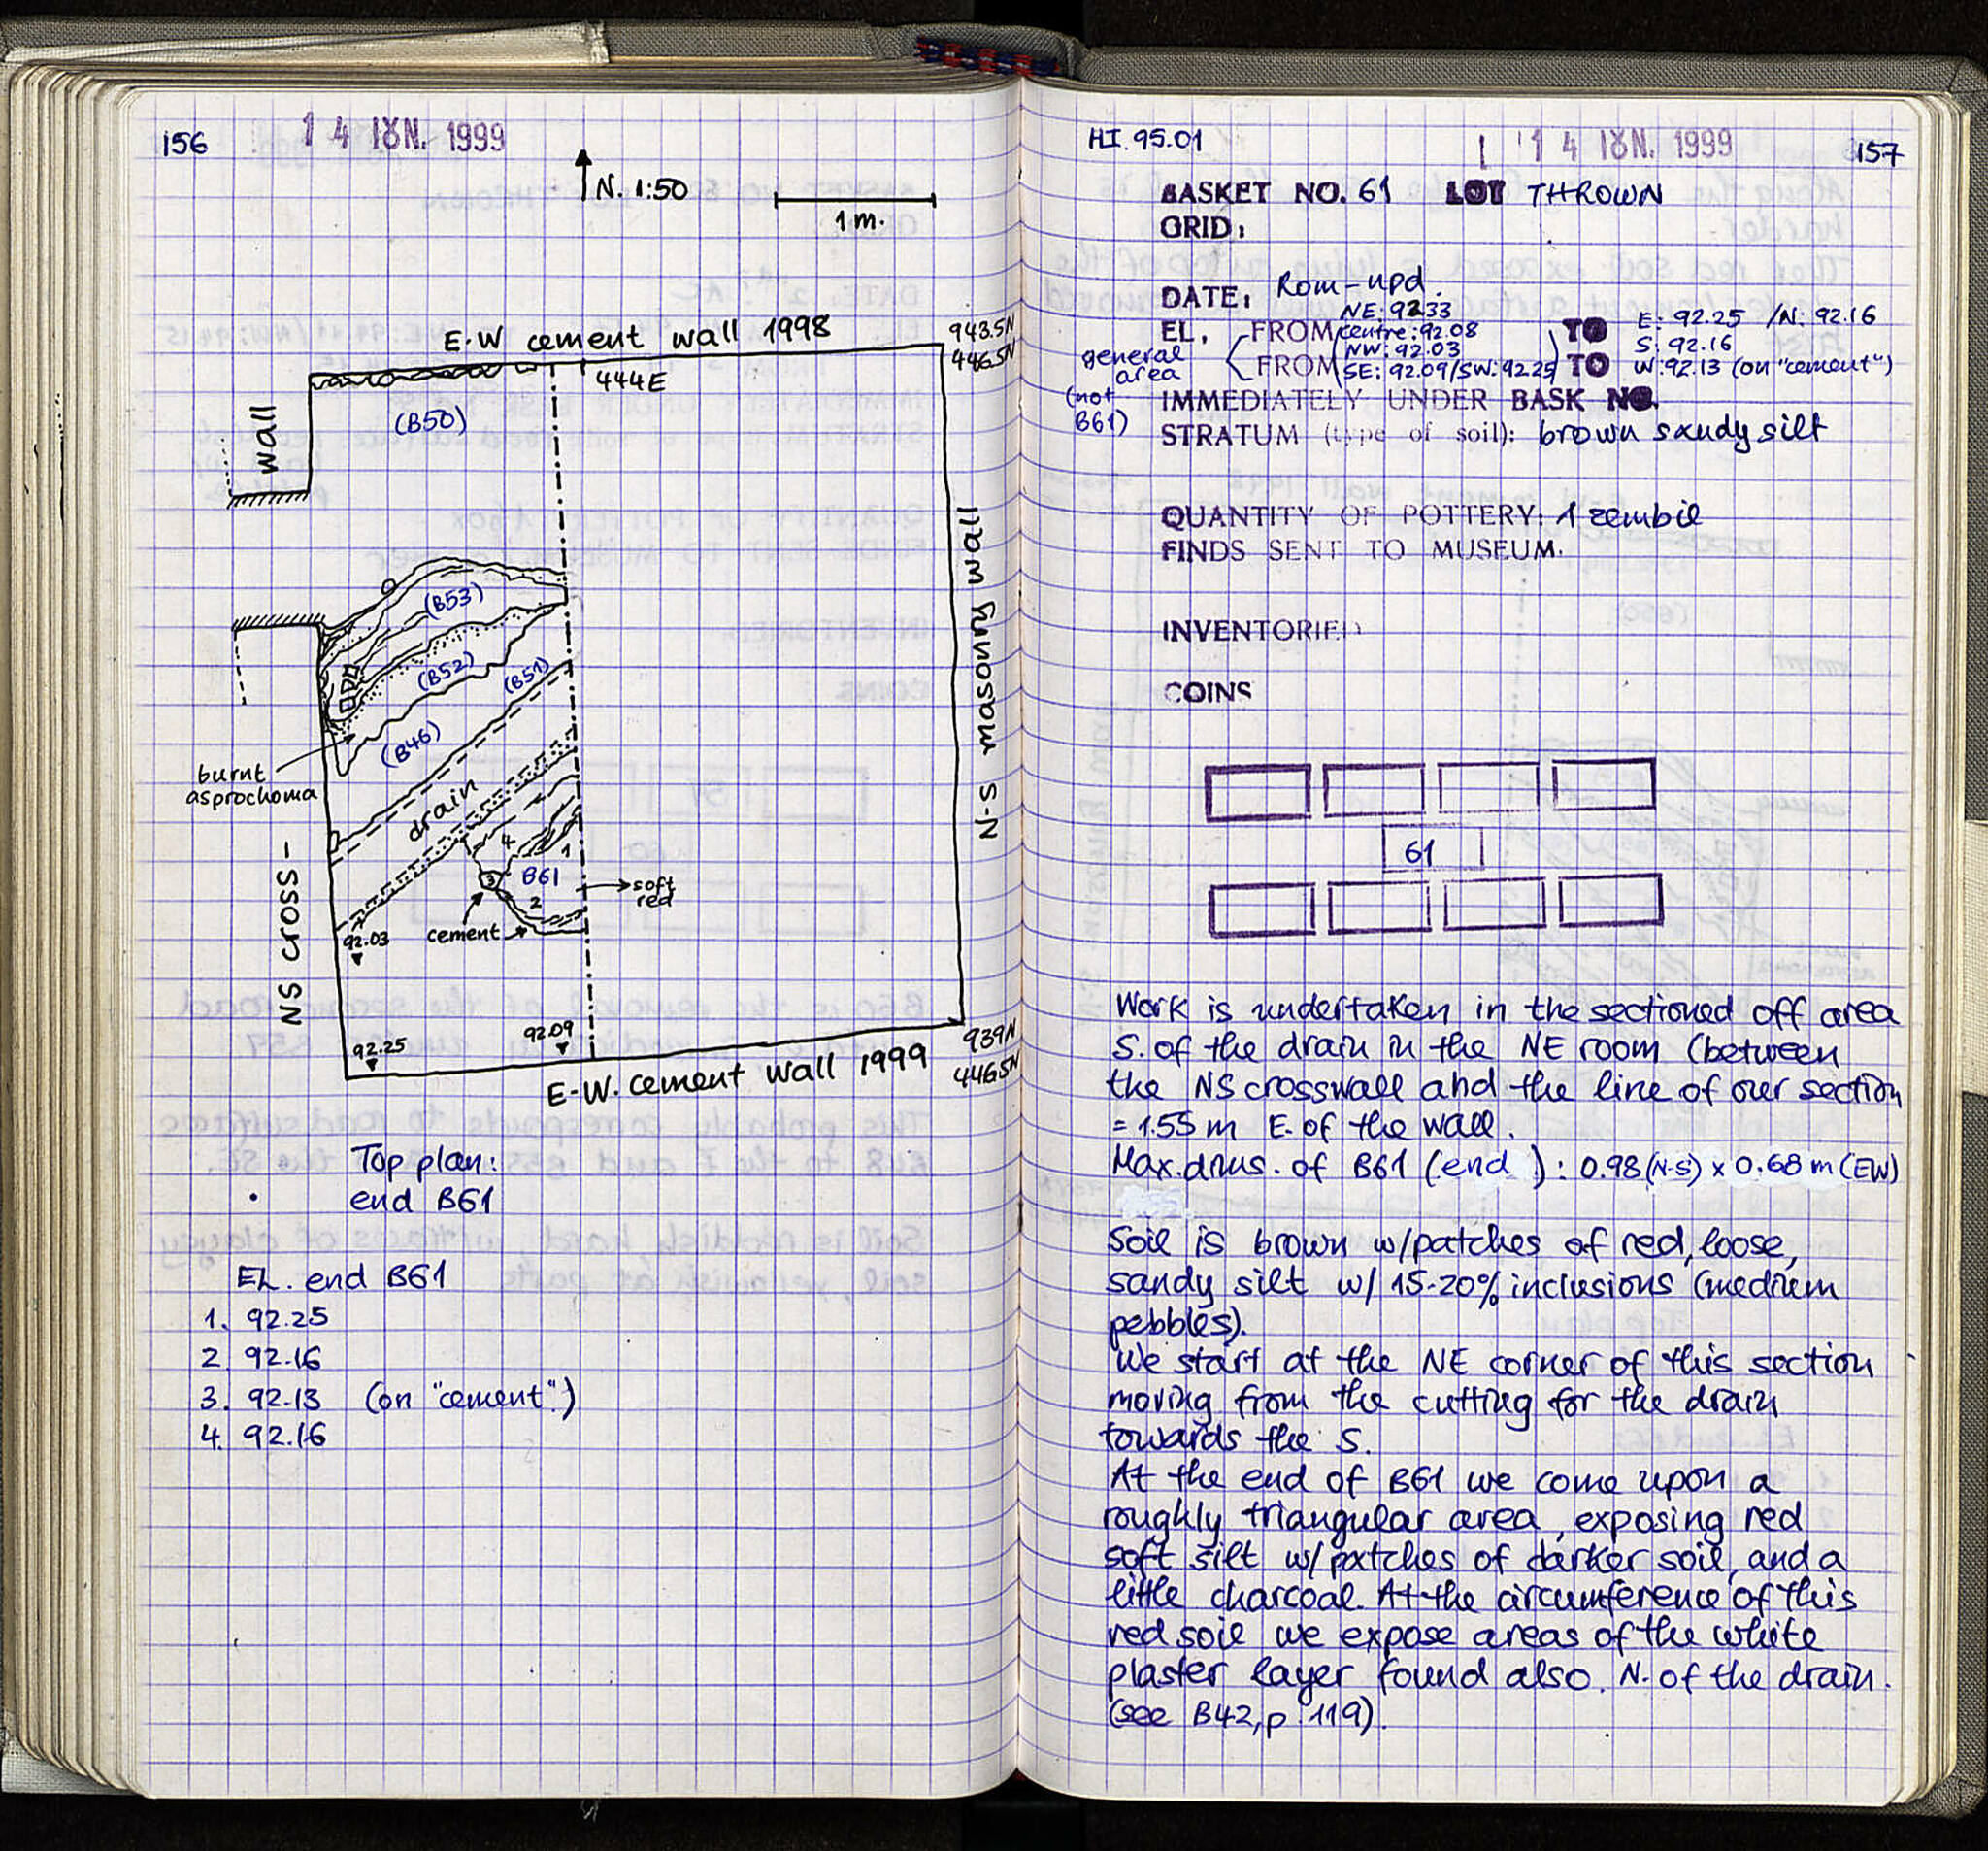 156
14 ΙΟΥΝ. 1999
N. 1:50
1 m.
E-W cement wall 1998
943.5N
446.5N
444E
wall
(B50)
(B53)
(B52)
(B51)
(B46)
burnt
asprochoma
drain
N-S masonry wall
4
1
B61
3
2
soft
red
cement
NS cross-
92.03
92.09
92.25
939N
446.5N
E-W. cement wall 1999
Top plan:
end B61
EL. end B61
1. 92.25
2. 92.16
3. 92.13 (on "cement")
4. 92.16
HI. 95.01
14 ΙΟΥΝ. 1999
157
BASKET NO. 61 LOT THROWN
GRID:
DATE: Rom-upd.
EL. FROM NE: 92.33 centre: 92.08 TO E: 92.25 / N: 92.16 S: 92.16
general area FROM NW: 92.03 SE: 92.09/SW: 92.25 TO W: 92.13 (on "cement")
(not B61) IMMEDIATELY UNDER BASK NO.
STRATUM (type of soil): brown sandy silt
QUANTITY OF POTTERY: 1 zembil
FINDS SENT TO MUSEUM.
INVENTORIED
COINS
61
Work is undertaken in the sectioned off area
S. of the drain in the NE room (between
the NS crosswall and the line of our section
= 1.55 m E. of the wall.
Max. dms. of B61 (end): 0.98 (N-S) x 0.68 m (EW)
Soil is brown w/patches of red, loose,
sandy silt w/ 15-20% inclusions (medium
pebbles).
We start at the NE corner of this section
moving from the cutting for the drain
towards the S.
At the end of B61 we come upon a
roughly triangular area, exposing red
soft silt w/patches of darker soil, and a
little charcoal. At the circumference of this
red soil we expose areas of the white
plaster layer found also N. of the drain.
(see B42, p. 119).